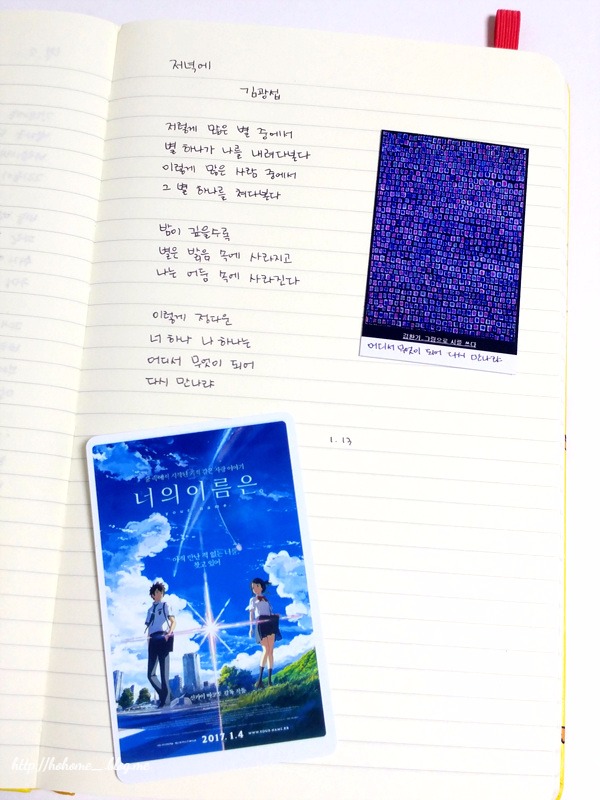 저녁에
김광섭
저렇게 많은 별 중에서
별 하나가 나를 내려다본다
이렇게 많은 사람 중에서
그 별 하나를 쳐다본다
밤이 깊을수록
별은 밝음 속에 사라지고
나는 어둠 속에 사라진다
이렇게 정다운
너 하나 나 하나는
어디서 무엇이 되어
다시 만나랴
김환기, 그림으로 시를 쓰다
어디서 무엇이 되어 다시 만나랴
1. 13
너의 이름은.
아직 만난 적 없는 너를,
찾고 있어
신카이 마코토 감독 작품
2017.1.4
http://hohome_.blog.me